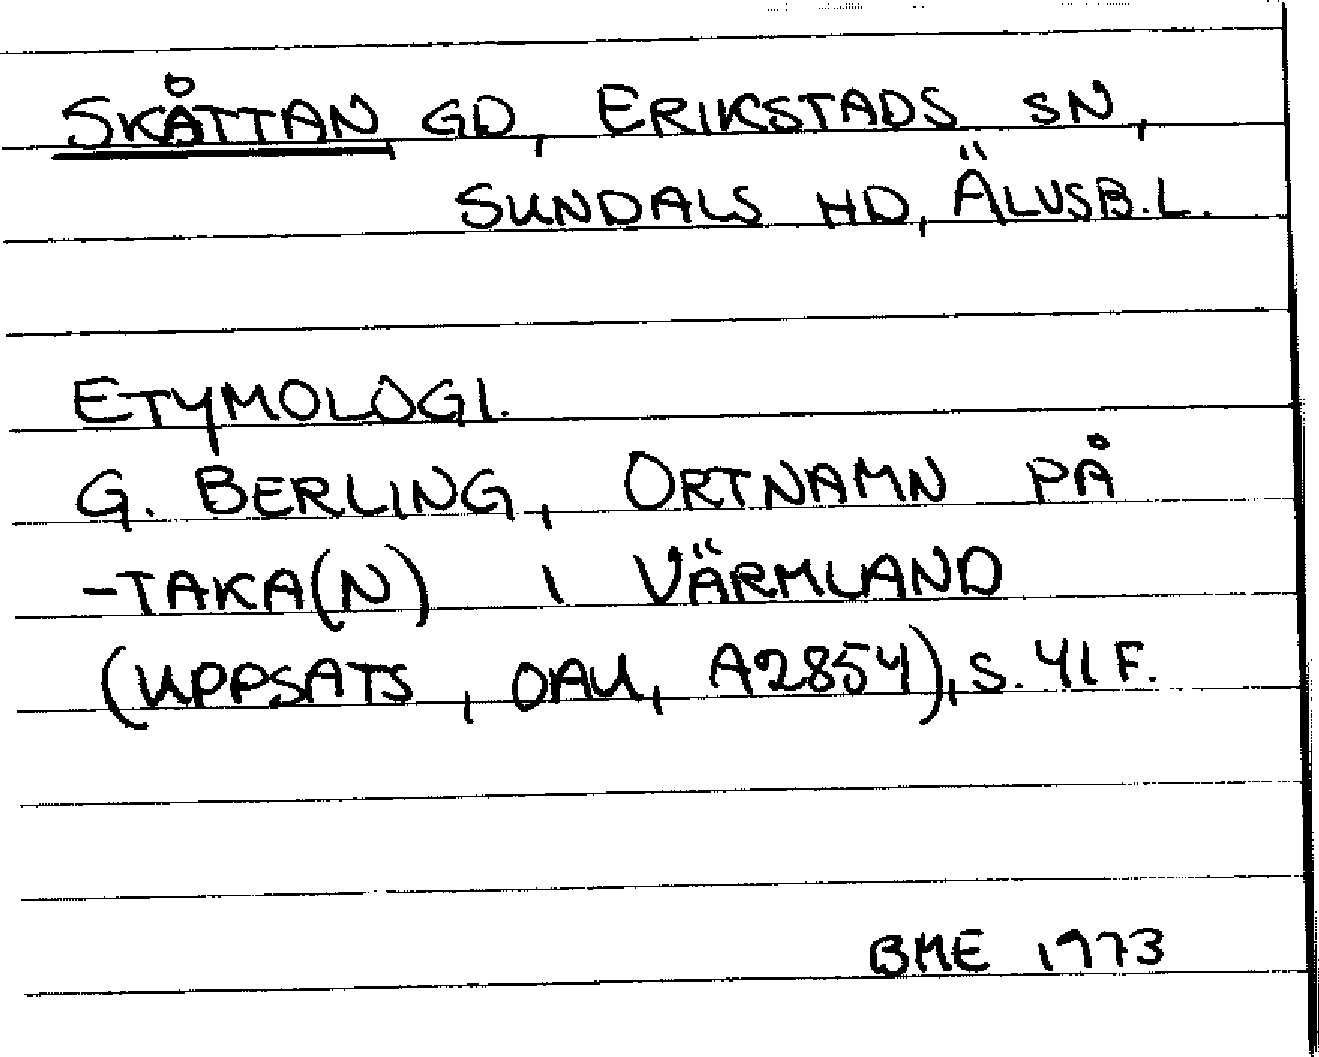 SKÅTTAN GD, ERIKSTADS SN,
SUNDALS HD, ÄLVSB.L.
ETYMOLOGI.
G. BERLING, ORTNAMN PÅ
-TAKA(N) I VÄRMLAND
(UPPSATS, OAU, A2854), S. 41 F.
BME 1973